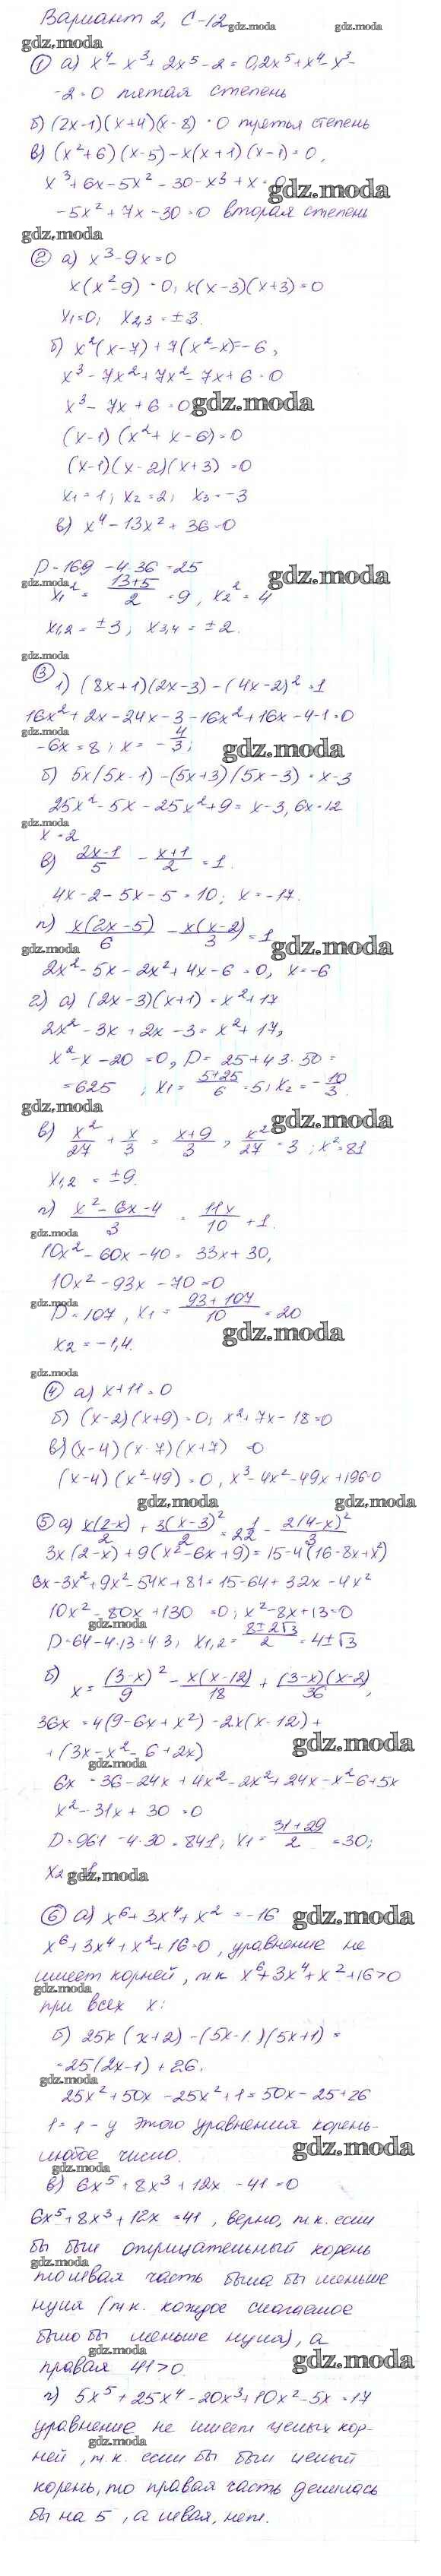 Вариант 2, С-12
gdz.moda gdz.moda
gdz.moda
① а) x⁴ - x³ + 2x⁵ - 2 = 0, 2x⁵ + x⁴ - x³ -
- 2 = 0 пятая степень
б) (2x-1)(x+4)(x-8) = 0 третья степень
в) (x²+6)(x-5) - x(x+1)(x-1) = 0,
x³ + 6x - 5x² - 30 - x³ + x = 0
gdz.moda
-5x² + 7x - 30 = 0 вторая степень
gdz.moda
② а) x³ - 9x = 0
x(x²-9) = 0, x(x-3)(x+3) = 0
x₁ = 0; x₂,₃ = ±3.
б) x²(x-7) + 7(x²-x) = -6,
x³ - 7x² + 7x² - 7x + 6 = 0
x³ - 7x + 6 = 0 gdz.moda
(x-1)(x²+x-6) = 0
(x-1)(x-2)(x+3) = 0
x₁ = 1; x₂ = 2; x₃ = -3
в) x⁴ - 13x² + 36 = 0
D = 169 - 4·36 = 25
gdz.moda gdz.moda
x₁² = (13+5)/2 = 9, x₂² = 4
x₁,₂ = ±3; x₃,₄ = ±2.
gdz.moda
③ 1) (8x+1)(2x-3) - (4x-2)² = 1
16x² + 2x - 24x - 3 - 16x² + 16x - 4 - 1 = 0
gdz.moda
-6x = 8; x = -4/3; gdz.moda
б) 5x(5x-1) - (5x+3)(5x-3) = x-3
25x² - 5x - 25x² + 9 = x - 3, 6x = 12
gdz.moda
x = 2
в) (2x-1)/5 - (x+1)/2 = 1.
4x - 2 - 5x - 5 = 10; x = -17.
г) x(2x-5)/6 - x(x-2)/3 = 1
gdz.moda gdz.moda
2x² - 5x - 2x² + 4x - 6 = 0, x = -6
2) а) (2x-3)(x+1) = x² + 17
2x² - 3x + 2x - 3 = x² + 17,
x² - x - 20 = 0, D = 25 + 4·3·50 =
= 625; x₁ = (5+25)/6 = 5; x₂ = -10/3.
gdz.moda gdz.moda
в) x²/27 + x/3 = (x+9)/3, x²/27 = 3; x² = 81
x₁,₂ = ±9.
г) (x²-6x-4)/3 = 11x/10 + 1.
gdz.moda
10x² - 60x - 40 = 33x + 30,
10x² - 93x - 70 = 0
gdz.moda
D = 107, x₁ = (93+107)/10 = 20
gdz.moda
x₂ = -1,4.
gdz.moda
④ а) x + 11 = 0
б) (x-2)(x+9) = 0; x² + 7x - 18 = 0
в) (x-4)(x-7)(x+7) = 0
(x-4)(x²-49) = 0, x³ - 4x² - 49x + 196 = 0
gdz.moda gdz.moda
⑤ а) x(2-x)/2 + 3(x-3)²/2 = 2 1/2 - 2(4-x)²/3
3x(2-x) + 9(x²-6x+9) = 15 - 4(16-8x+x²)
6x - 3x² + 9x² - 54x + 81 = 15 - 64 + 32x - 4x²
10x² - 80x + 130 = 0; x² - 8x + 13 = 0
gdz.moda
D = 64 - 4·13 = 4·3; x₁,₂ = (8±2√3)/2 = 4±√3
б) x = (3-x)²/9 - x(x-12)/18 + (3-x)(x-2)/36,
36x = 4(9-6x+x²) - 2x(x-12) +
gdz.moda
+ (3x-x²-6+2x)
gdz.moda
6x = 36 - 24x + 4x² - 2x² + 24x - x² - 6 + 5x
x² - 31x + 30 = 0
D = 961 - 4·30 = 841; x₁ = (31+29)/2 = 30;
x₂ gdz.moda
⑥ а) x⁶ + 3x⁴ + x² = -16 gdz.moda
x⁶ + 3x⁴ + x² + 16 = 0, уравнение не
имеет корней, т.к x⁶ + 3x⁴ + x² + 16 > 0
gdz.moda
при всех x:
б) 25x(x+2) - (5x-1)(5x+1) =
= 25(2x-1) + 26.
gdz.moda
25x² + 50x - 25x² + 1 = 50x - 25 + 26
1 = 1 - у этого уравнения корень-
любое число. gdz.moda
gdz.moda
в) 6x⁵ + 8x³ + 12x - 41 = 0
6x⁵ + 8x³ + 12x = 41, верно, т.к. если
бы был отрицательный корень
gdz.moda
то левая часть была бы меньше
нуля (т.к. каждое слагаемое
было бы меньше нуля), а
gdz.moda
правая 41 > 0. gdz.moda
г) 5x⁵ + 25x⁴ - 20x³ + 10x² - 5x = 17
уравнение не имеет целых кор-
gdz.moda
ней, т.к. если бы был целый
корень, то правая часть делилась
бы на 5, а левая, нет.